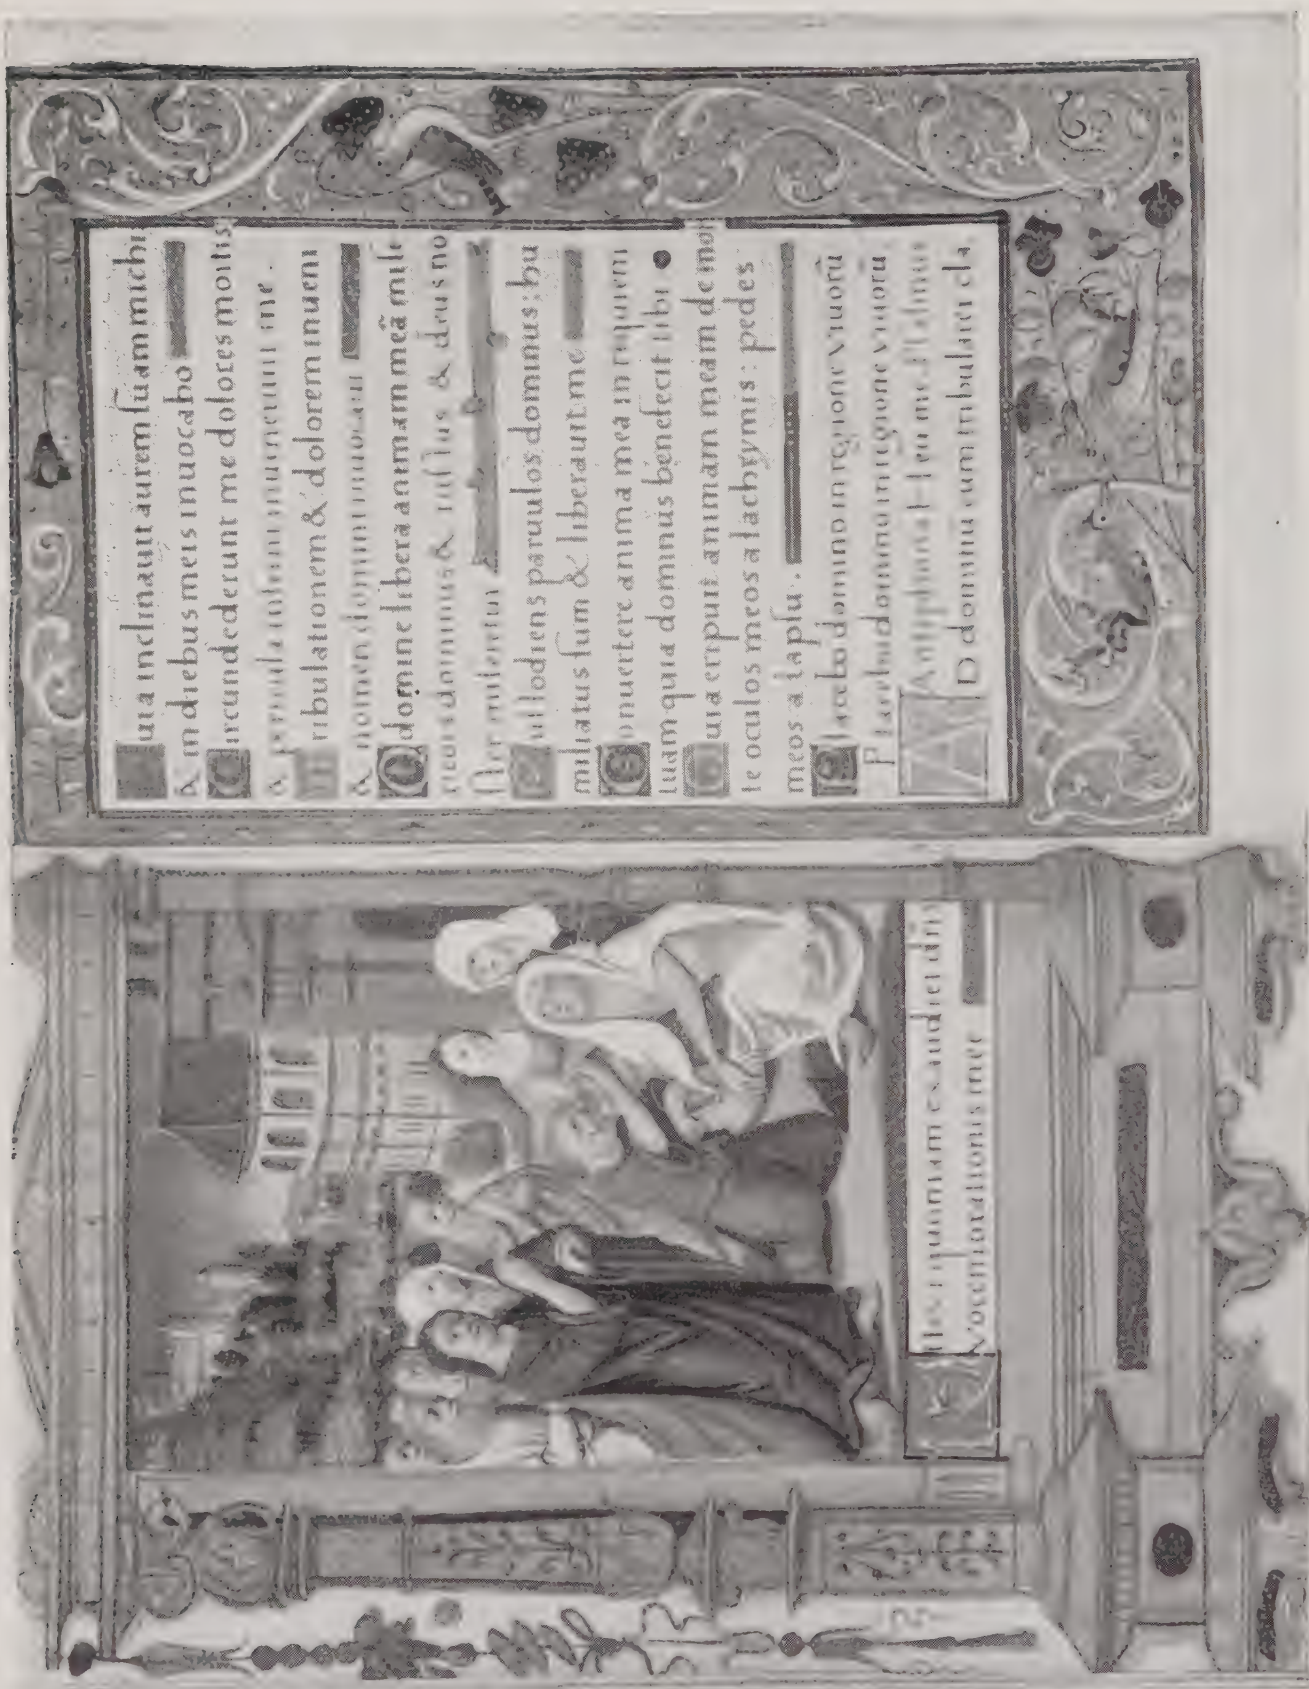 Dilexi quoniam exaudiet dns
Vocem orationis mee
Quia inclinauit aurem suam michi
& in diebus meis inuocabo
Circundederunt me dolores mortis
& pericula inferni inuenerunt me.
Tribulationem & dolorem inueni
& nomen domini inuocaui
O domine libera animam meã mise
ricors dominus & iustus & deus no
ster miseretur
Custodiens paruulos dominus : hu
miliatus sum & liberauit me
Conuertere anima mea in requiem
tuam quia dominus benefecit tibi
Quia eripuit animam meam de mor
te oculos meos a lachrymis : pedes
meos a lapsu .
Placebo domino in regione viuorũ
Placebo domino in regione viuorũ
Antiphona Heu me. Psalmus
AD dominũ cum tribularer cla